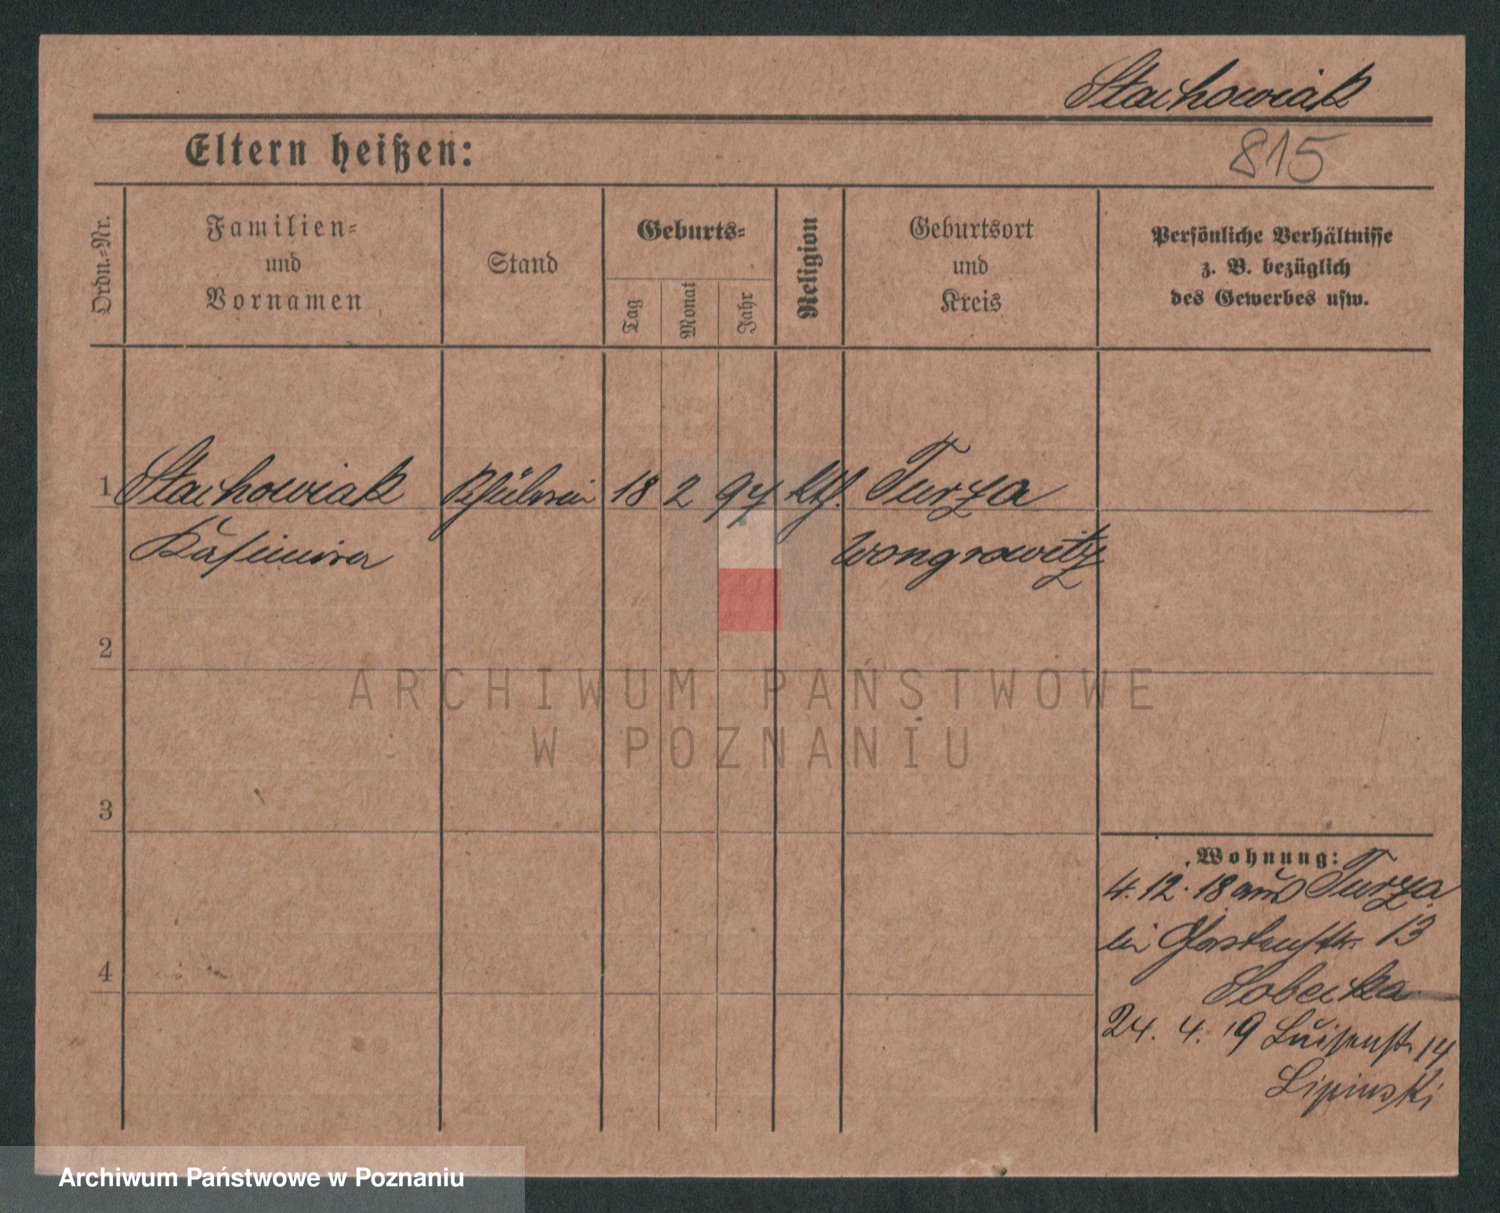 Stachowiak
Eltern heißen:
815
Ordn.-Nr.
Familien-
und
Vornamen
Stand
Geburts-
Tag
Monat
Jahr
Religion
Geburtsort
und
Kreis
Persönliche Verhältnisse
z. B. bezüglich
des Gewerbes usw.
1 Stachowiak 18 2 97 kth. Turza
Kasimira Wongrowitz
2
3
4
ARCHIWUM PAŃSTWOWE
W POZNANIU
Wohnung:
4.12.18 aus Turza
bei Gartenstr. 13
Sobecka
24. 4. 19 Luisenstr. 14
Lipinski
Archiwum Państwowe w Poznaniu